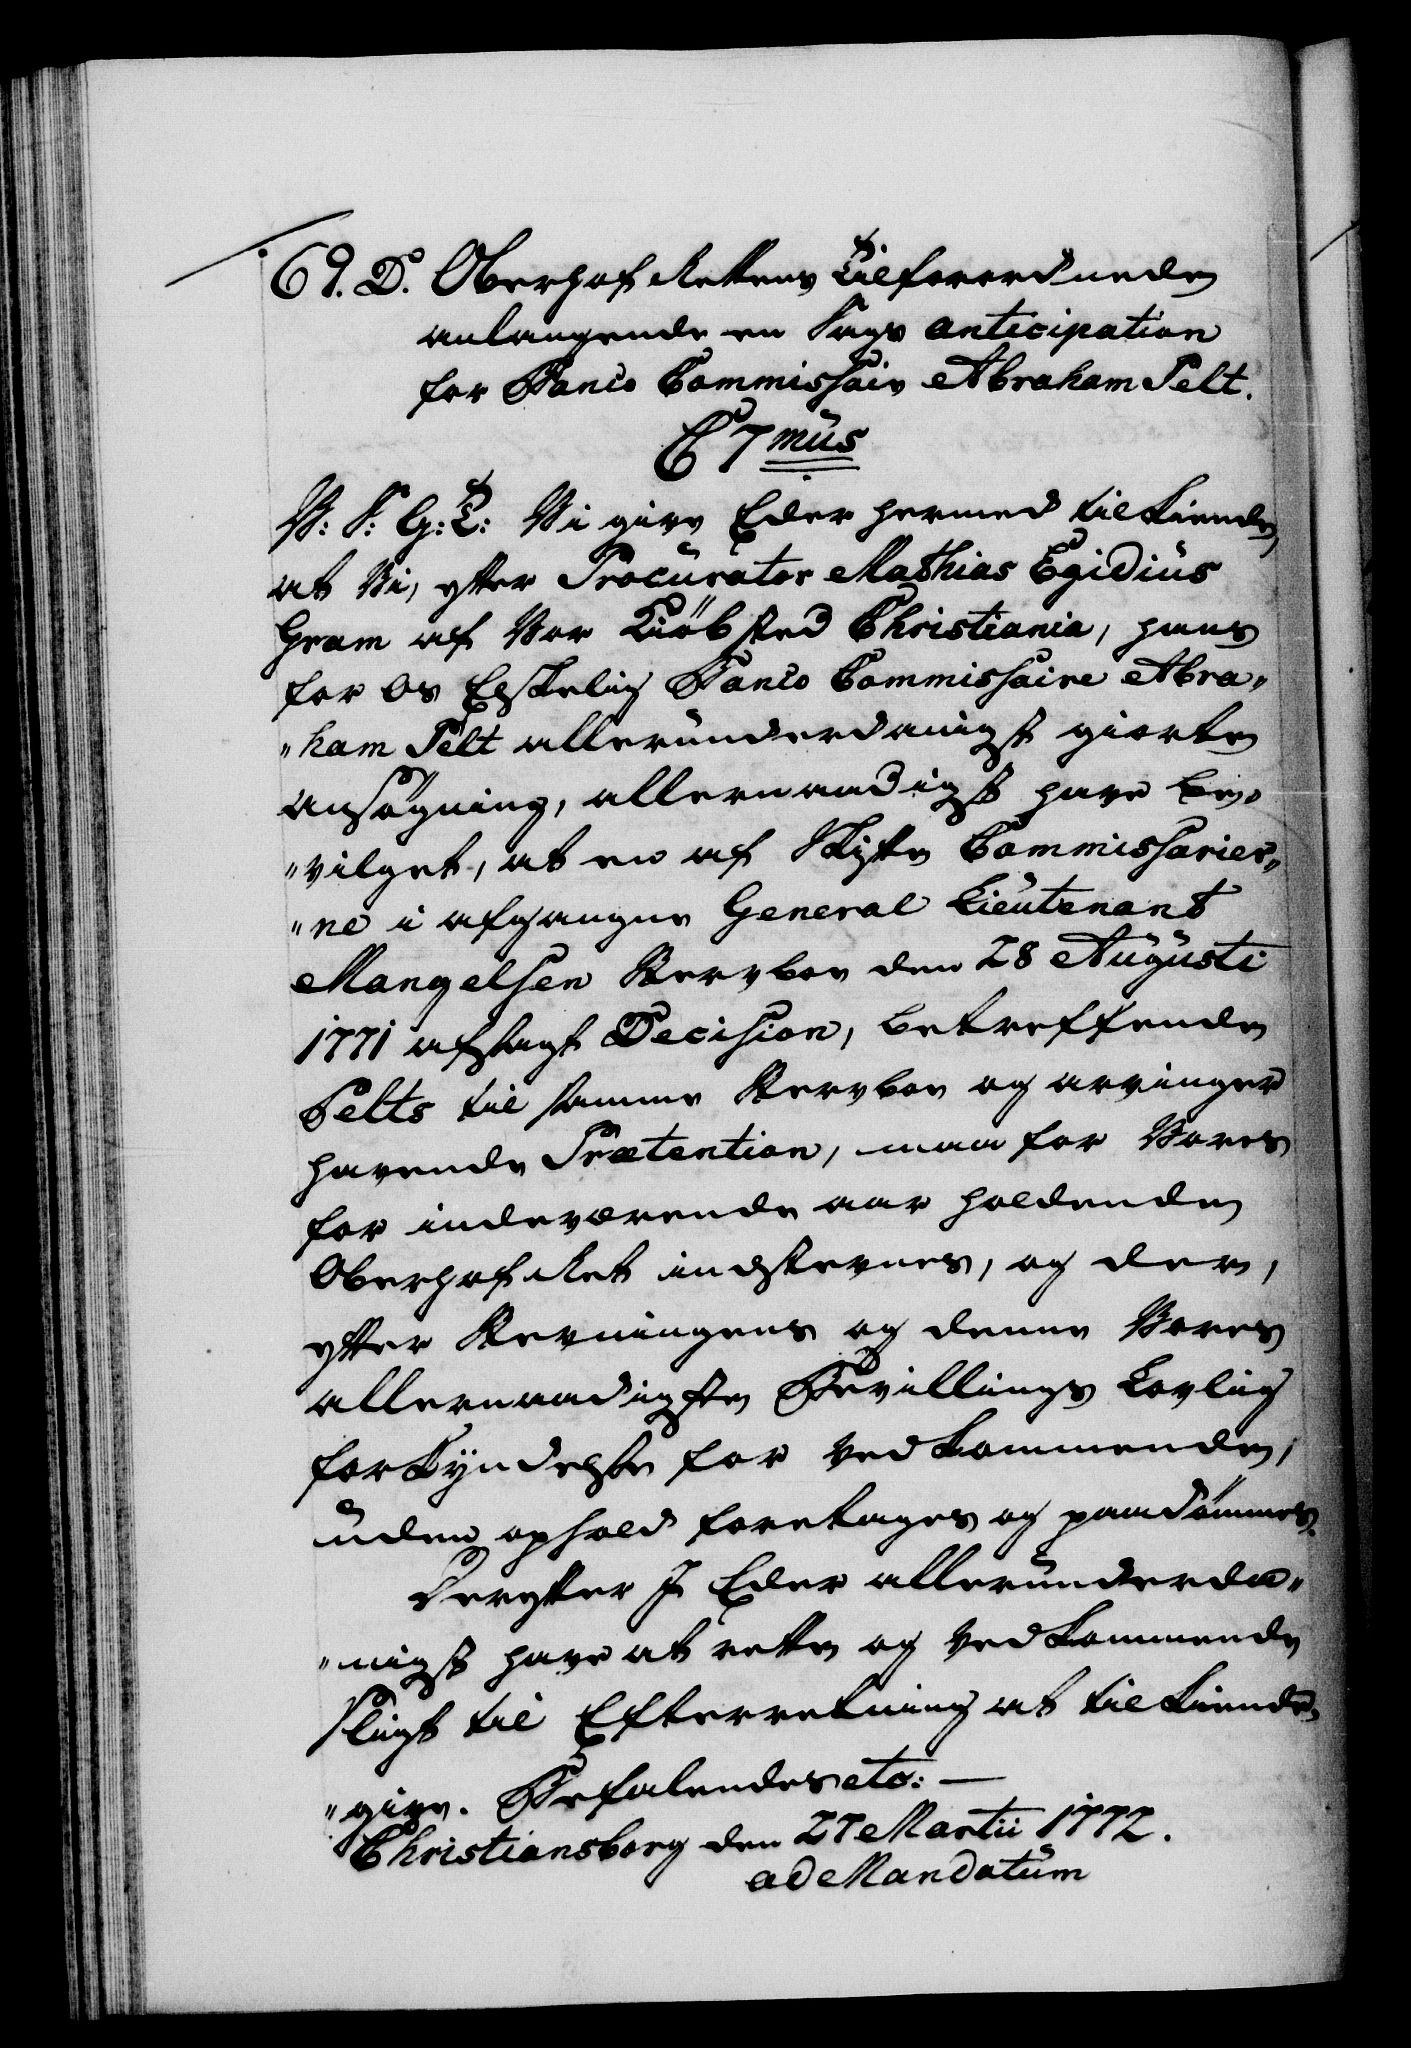 69. D. Oberhof Rettens Tilforordnede
anlangende en Sags Anticipation
for Banco Commissair Abraham Pelt.
C 7mus
V: S: G: T: Vi give Eder hermed tilkiende,
at Vi, efter Procurator Mathias Egidius
Gram af Vor Kiöbsted Christiania, hans
for Os Elskelig Banco Commissaire Abra„
„ham Pelt allerunderdanigst giorte
Ansögning, allernaadigst have be„
„vilget, at en af Skifte Commissarier„
„ne i afgangne General Lieutenant
Mangelsen Stervboe den 28 Augusti
1771 afsagt Decision, betreffende
Pelts til samme Stervboe og arvinger
havende Prætention, maa for Vores
for indeværende aar holdende
Oberhof Ret indstevnes, og der,
efter Stevningens og denne Vores
allernaadigste Bevillings Lovlig
forkyndelse for Vedkommende,
uden ophold foretages og paadömmes.
Derefter I Eder allerunderda„
„nigst have at rette og Vedkommende
Sligt til Efterretning at tilkiende„
„give. Befalendes etc: —
Christiansborg den 27 Martii 1772.
ad Mandatum